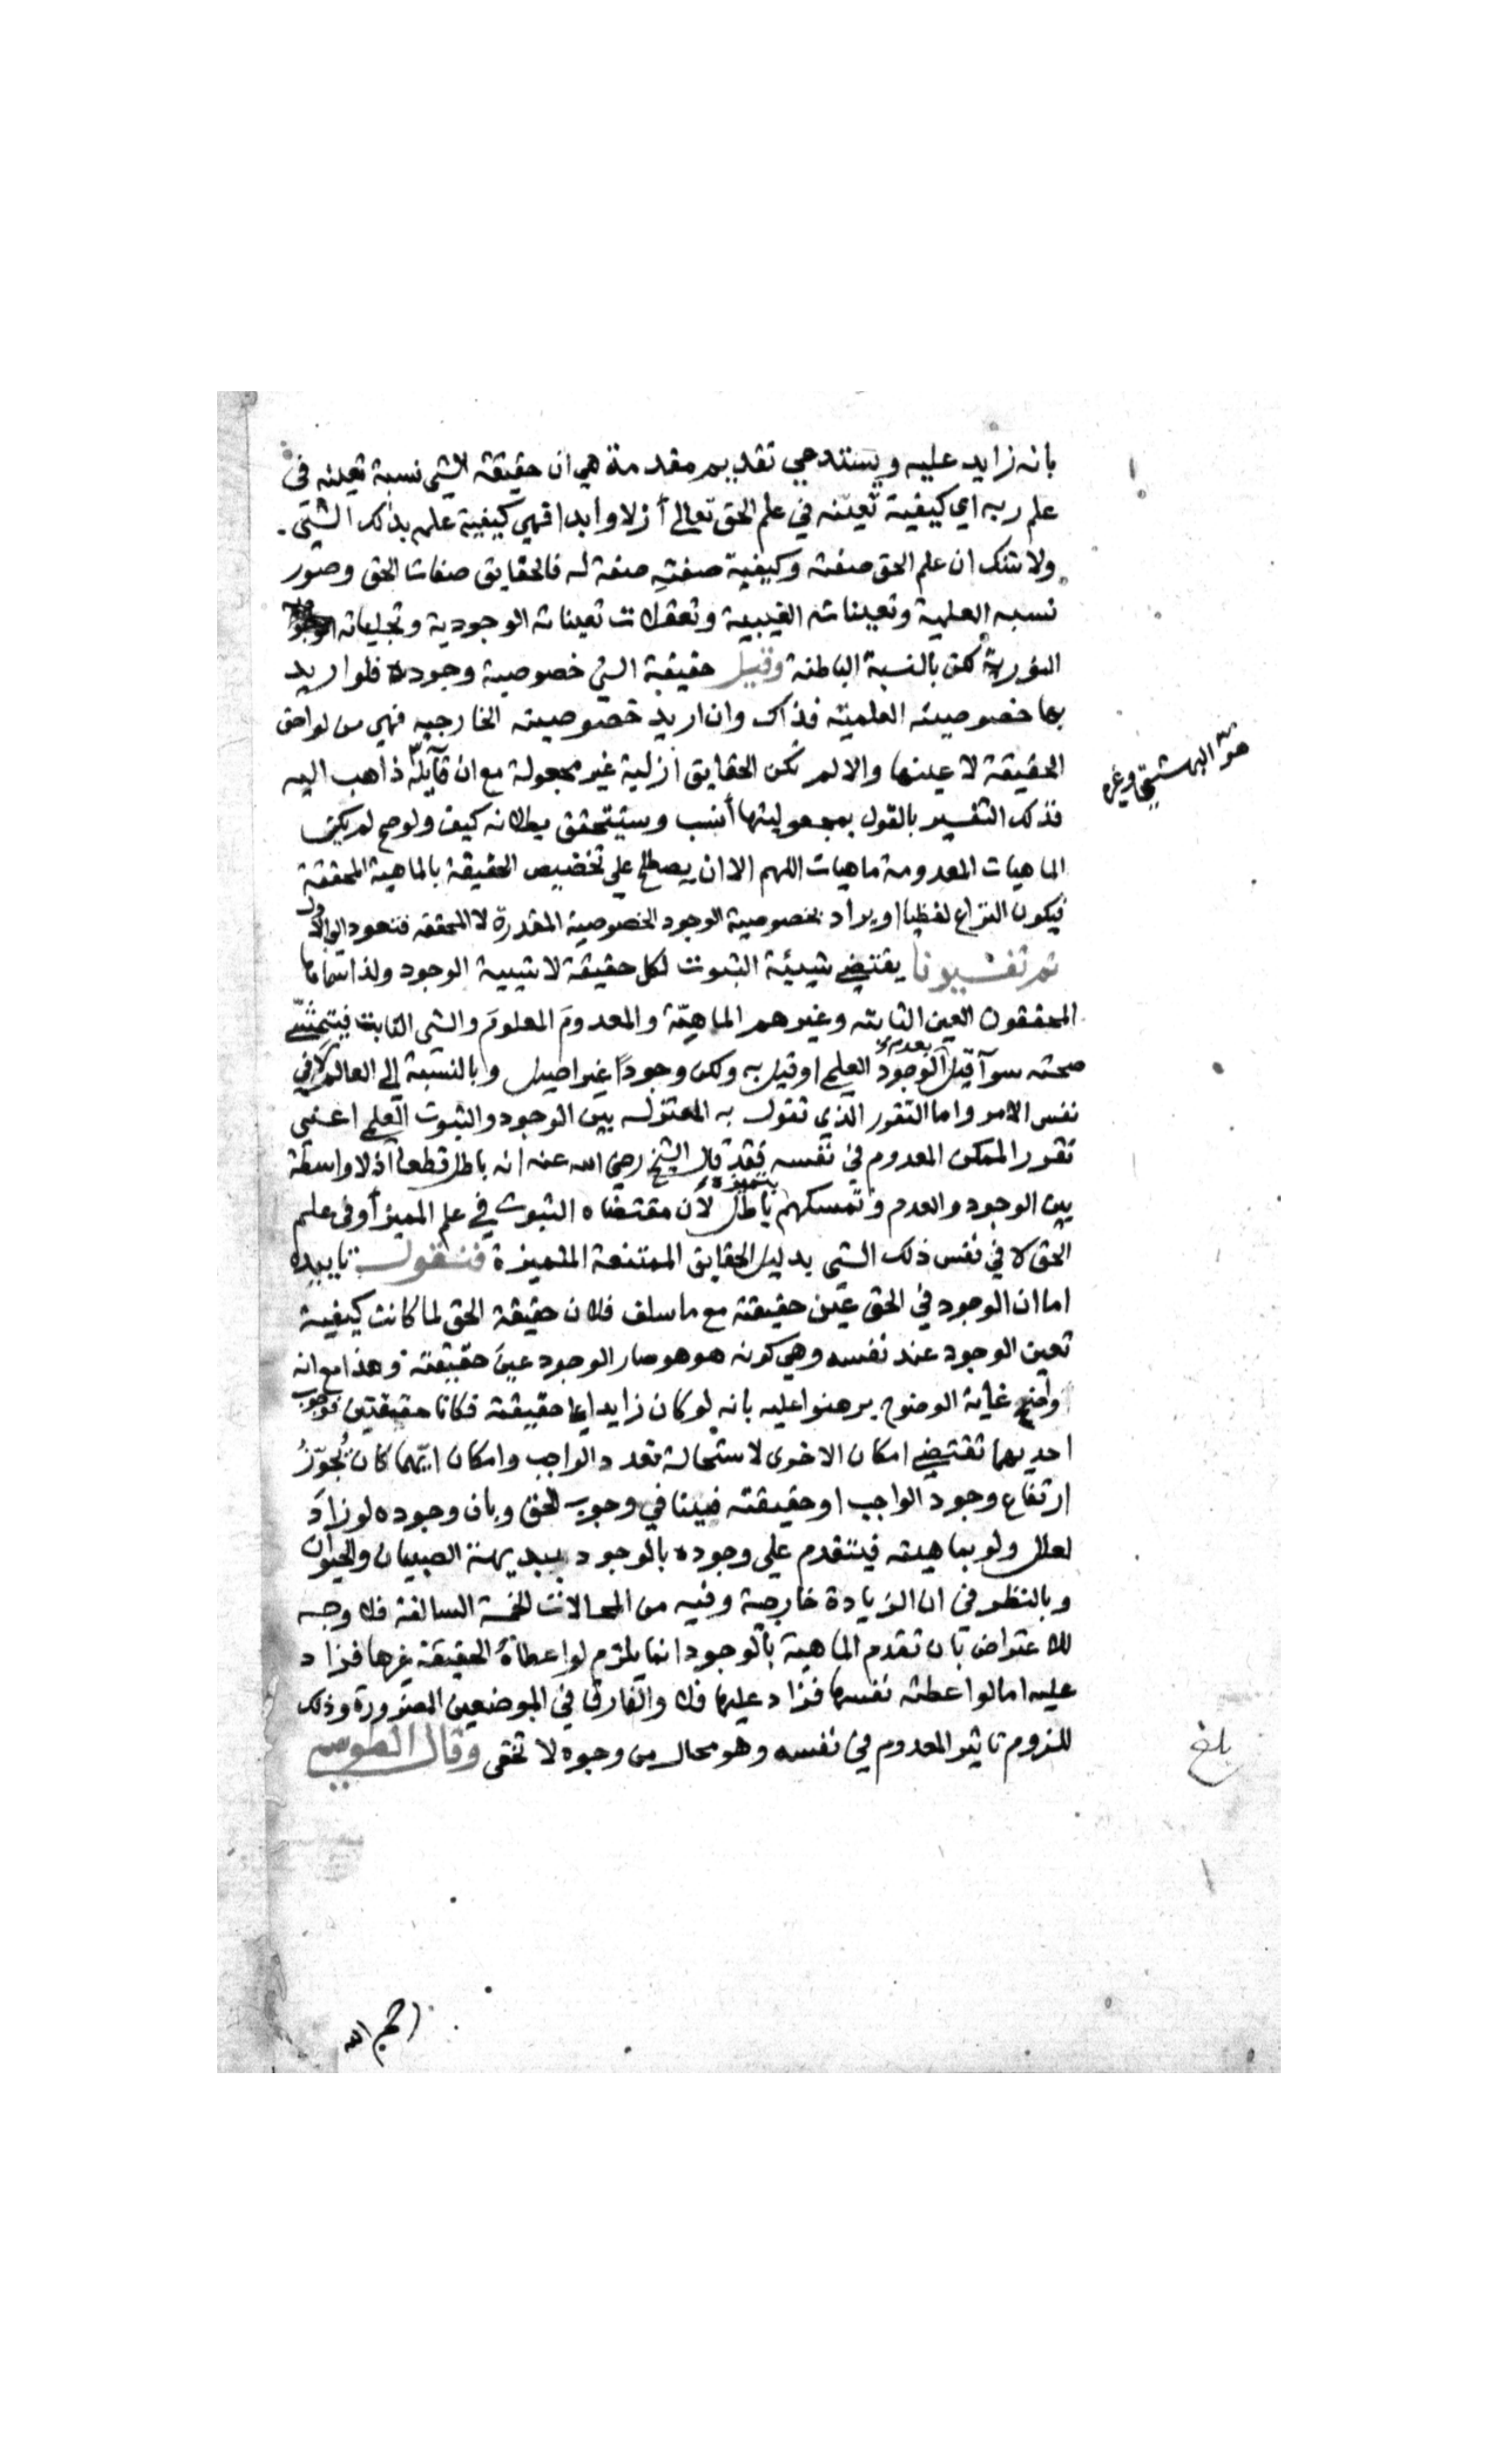 بانه زايد عليه ويستدعي تقديم مقدمة هي ان حقيقة الشي نسبة تعينه في
علم ربه اي كيفية تعينه في علم الحق تعالى أزلا وأبدا فهي كيفية علمه بذلك الشي
ولا شك ان علم الحق صفته وكيفية صفته صفة له فالحقايق صفات الحق وصور
نسبه العلمية وتعينات الغيبية وتعقلات تعيناته الوجودية وتجلياته
النورية لكن بالنسبة الباطنة وقيل حقيقة الشي خصوصية وجوده فلو اريد
بها خصوصيته العلمية فذاك وان اريد خصوصيته الخارجيه فهي من لواحق
الحقيقة لا عينها والا لم تكن الحقايق أزلية غير مجعولة مع ان قآيله ذاهب اليه
فذلك التفسير بالقول بمجعوليتها أنسب وسيتحقق بطلانه كيف ولو صح لم يكن
الماهيات المعدومة ماهيات اللهم الا ان يصطلح على تخصيص الحقيقة بالماهية المحققة
فيكون النزاع لفظيا او يراد بخصوصية الوجود الخصوصية المقدرة لا المحققه فتعود الى الاول
ثم تفسيرنا يقتضي شيئية الثبوت لكل حقيقة لا شيية الوجود ولذا سماها
المحققون العين الثابته وغيرهم الماهيّة والمعدومَ المعلومَ والشي الثابت فيتمشّى
صحته سوآ قيل بعدمية الوجود العلمي او قيل به ولكن وجوداً غير اصيل وبالنسبة الى العالم لا في
نفس الامر واما التقرر الذي تقول به المعتزله بين الوجود والثبوت العلمي اعنى
تقرر الممكن المعدوم في نفسه فقد قال الشيخ رضي الله عنه انه باطل قطعا اذ لا واسطة
بين الوجود والعدم وتمسكهم بتميزه باطل لان مقتضاه الثبوت في علم المميز أو في علم
الحق لا في نفس ذلك الشي بدليل الحقايق الممتنعة المتميزة فنقول تاييده
اما ان الوجود في الحق عين حقيقته مع ما سلف فلان حقيقة الحق لما كانت كيفية
تعين الوجود عند نفسه وهي كونه هو هو صار الوجود عينَ حقيقته وهذا مع انه
واضح غاية الوضوح برهنوا عليه بانه لو كان زايدا على حقيقته فكانا حقيقتين فوجوب
احديهما تقتضي امكان الاخرى لاستحالة تعدد الواجب وامكان ايّهما كان يُجوّزُ
ارتفاع وجود الواجب او حقيقته فينافي وجوب الحق وبان وجوده لو زاد
لعلل ولو بماهيته فيتقدم على وجوده بالوجود ببديهة الصبيان والحيوان
وبالنظر في ان الزيادة خارجية وفيه من المحالات الخمسة السالفة فلا وجه
للاعتراض بان تقدم الماهية بالوجود انما يلزم لو اعطاهُ الحقيقة غيرها فزاد
عليه اما لو اعطته نفسها فزاد عليها فلا والفارق في الموضعين الضرورة وذلك
للزوم تاثير المعدوم في نفسه وهو محال من وجوه لا تخفى وقال الطوسي
هو البهشتي وغيره
بلغ